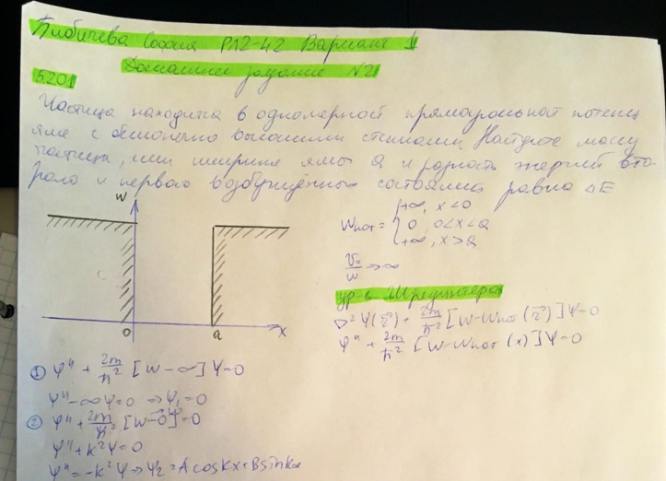 София РЛ2-42 Вариант 1
Домашнее задание №21
5.201
Частица находится в одномерной прямоугольной потенц
яме с бесконечно высокими стенками. Найдите массу
частицы, если ширина ямы a и разность энергий вто-
рого и первого возбуждённых состояний равна ΔE
W
0 a x
Wпот = { +∞, x<0
0, 0<x<a
+∞, x>a
→∞
ур-е Шредингера
∇²Ψ(r⃗) + 2m/ħ² [W-Wпот(r⃗)]Ψ=0
Ψ'' + 2m/ħ² [W-Wпот(x)]Ψ=0
① Ψ'' + 2m/ħ² [W-∞]Ψ=0
Ψ''-∞Ψ=0 ⇒Ψ₁=0
② Ψ''+ 2m/ħ² [W-0]Ψ=0
Ψ''+k²Ψ=0
Ψ''=-k²Ψ⇒Ψ₂=Acoskx+Bsinkx